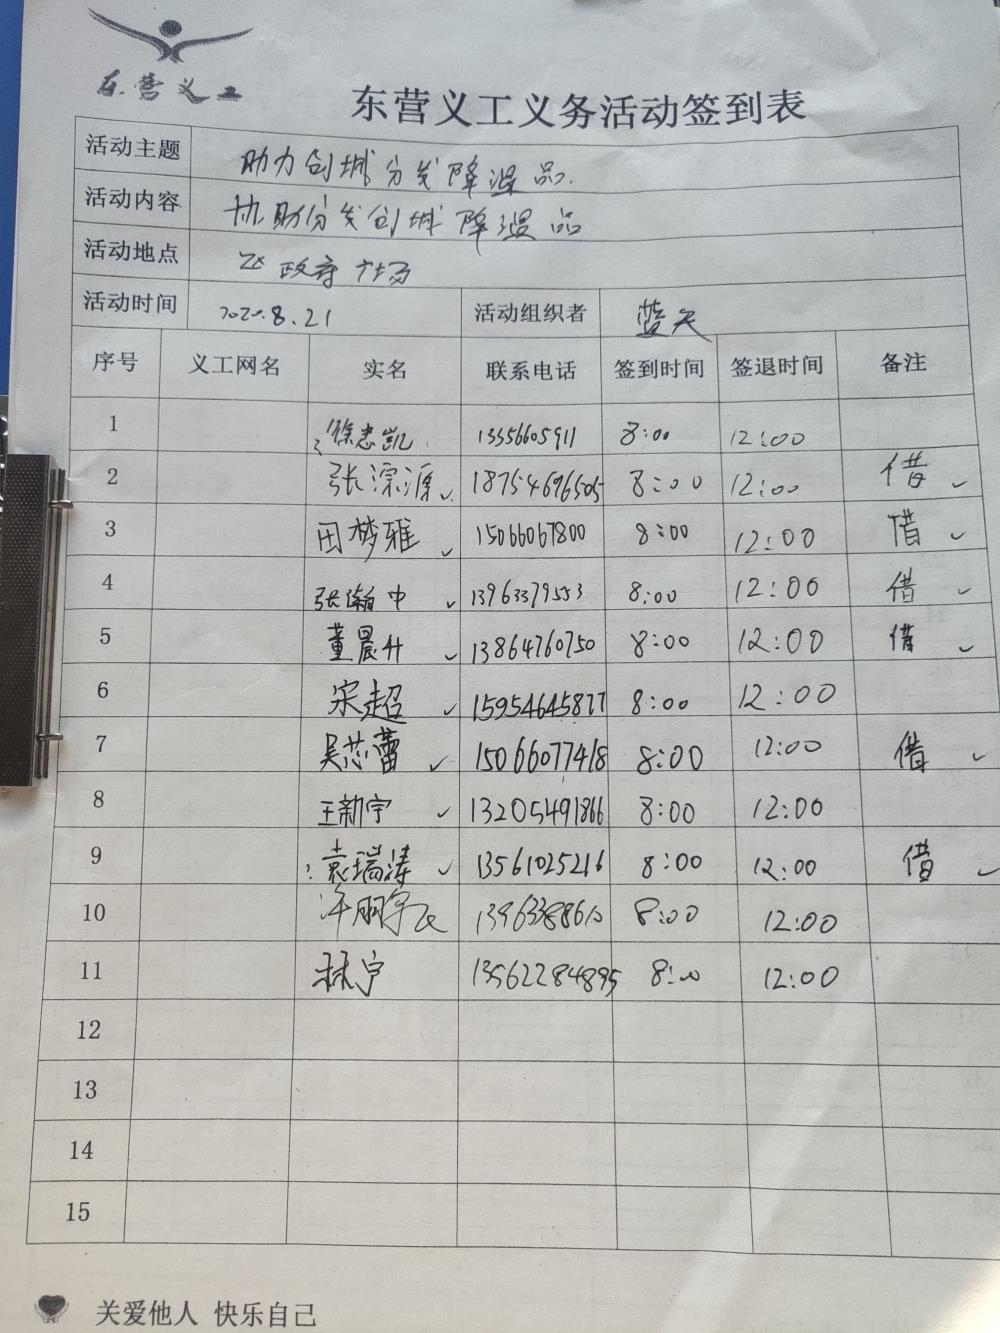 东营义工
东营义工义务活动签到表
活动主题 助力创城分发降温品.
活动内容 协助分发创城降温品
活动地点 区政府广场
活动时间 2020.8.21 活动组织者 蓝天
序号 义工网名 实名 联系电话 签到时间 签退时间 备注
1 徐志凯 13356605911 8:00 12:00
2 张淙源 18754696505 8:00 12:00 借
3 田梦雅 15066067800 8:00 12:00 借
4 张瀚中 13963379553 8:00 12:00 借
5 董晨升 13864760750 8:00 12:00 借
6 宋超 15954645877 8:00 12:00
7 吴芯蕾 15066077418 8:00 12:00 借
8 王新宇 13205491866 8:00 12:00
9 袁瑞涛 13561025216 8:00 12:00 借
10 8:00 12:00
11 林宁 13562284895 8:00 12:00
12
13
14
15
关爱他人 快乐自己